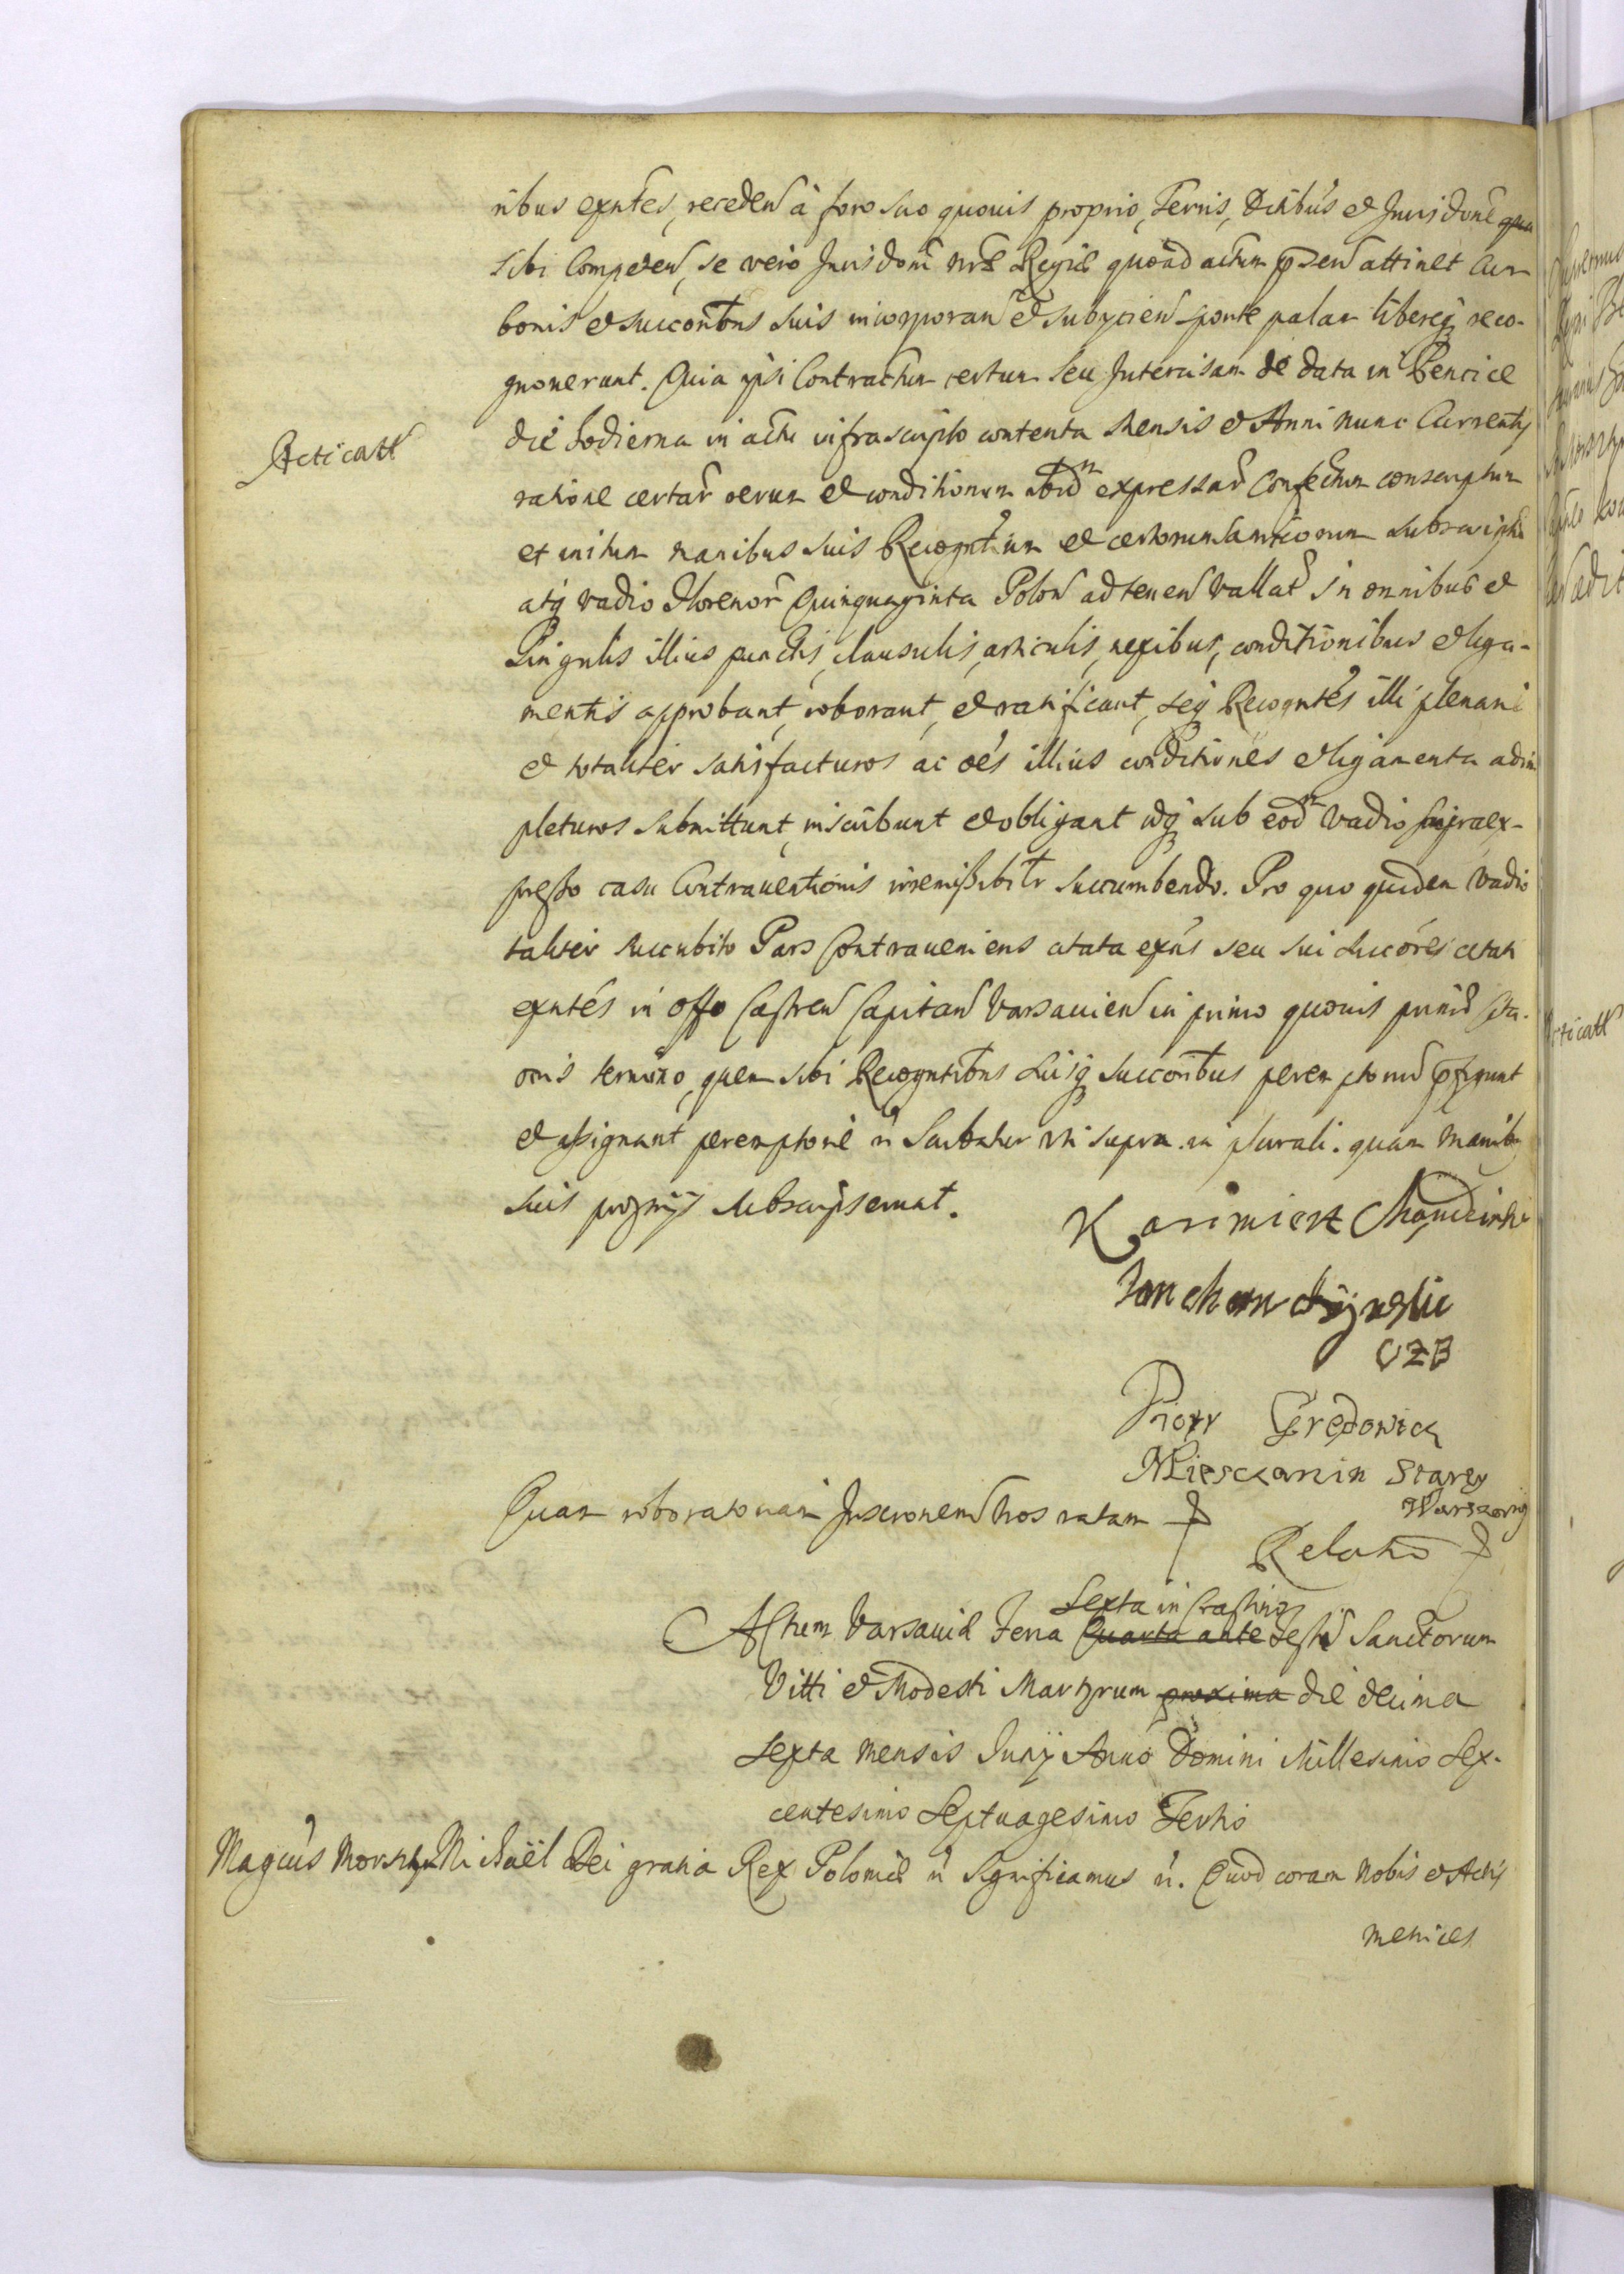 ribus exntes, receden à foro suo quouis proprio, Terris, Ditibus et Jurisdone
sibi Competen, se vero Jurisdoni nrae Regiae quoad actum pntem attinet cum
bonis et succoribus suis incorporan et subijcien sponte palam libereq reco-
gnouerunt. Quia ipsi Contractum certum seu Intercisam de data in
die hodierna in actu infrascripto contenta Mensis et Anni nunc Currentis
Acticatt
ratione certar rerum et conditionum ibid expressar Confectum conscriptum
et initum manibus suis Recogntium et certorum amicorum subscriptum
atq vadio Florenor Quinquaginta Polon ad tenen Vallat in omnibus et
Singulis illius punctis, clausulis, articulis, nexibus, conditionibus et liga-
mentis approbant, roborant, et ratificant, seq Recogntes illi plenarie
et totaliter satisfacturos ac oes illius conditiones et ligamenta adim
pleturos submittunt, inscribunt et obligant idq sub eod vadio supraex-
presso casu Contrauentionis irremissibiltr succumbendo. Pro quo quidem vadio
taliter succubito Pars Contraueniens citata exns seu sui succores citati
exntes in offo Castren Capitan Varsauien in primo quouis
termino, quem sibi Recogntibus suisq succoribus
et assignant peremptorie Scribatur uti supra in plurali. quam manibus
suis proprijs subscripserunt.
Kazimierz
Jan
Piotr Gredowicz
Miesczanin Starey
Warszawy
Quam roboratoriam Inscronem nos ratam
Relatio
Sexta in Crastino
Actum Varsauiae Feria Quarta ante Festi Sanctorum
Vitti et Modesti Martyrum proxima die decima
Sexta mensis Junij Anno Domini Millesimo Sex-
centesimo Septuagesimo Tertio
Michaël Dei gratia Rex Poloniae Significamus Quod coram Nobis et Actis